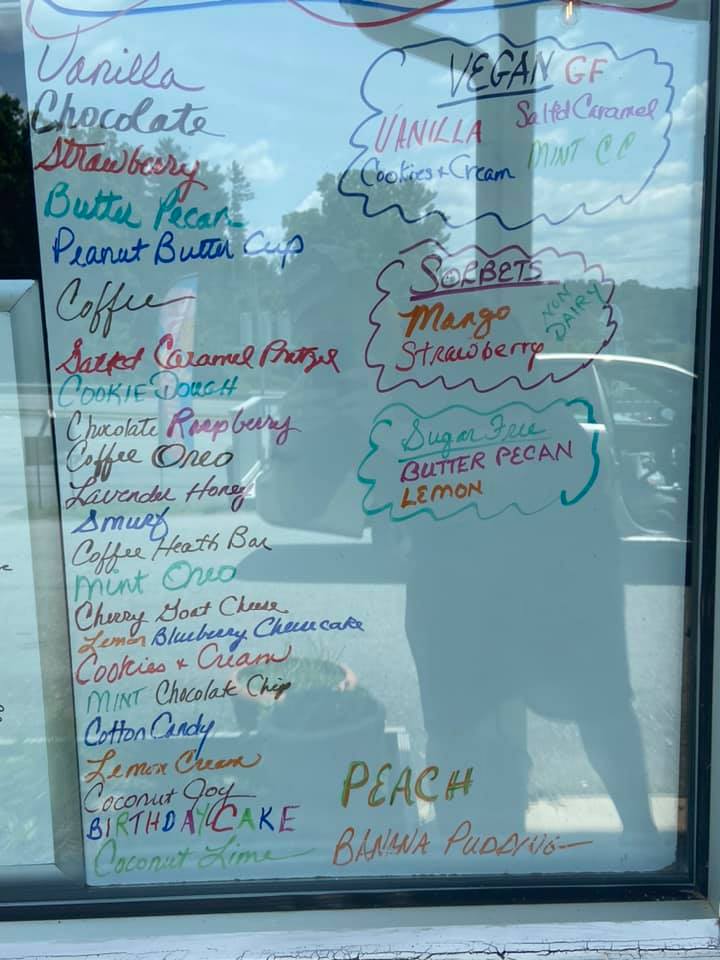 Vanilla
Chocolate
Strawberry
Butter Pecan
Peanut Butter Cup
Coffee
Salted Caramel Pretzel
COOKIE DOUGH
Chocolate Raspberry
Coffee Oreo
Lavender Honey
Smurf
Coffee Heath Bar
Mint Oreo
Cherry Goat Cheese
Lemon Blueberry Cheesecake
Cookies + Cream
MINT Chocolate Chip
Cotton Candy
Lemon Cream
Coconut Joy
BIRTHDAY CAKE
Coconut Lime
VEGAN GF
VANILLA Salted Caramel
Cookies + Cream MINT CC
SORBETS
Mango
Strawberry
NON
DAIRY
Sugar Free
BUTTER PECAN
LEMON
PEACH
BANANA PUDDING